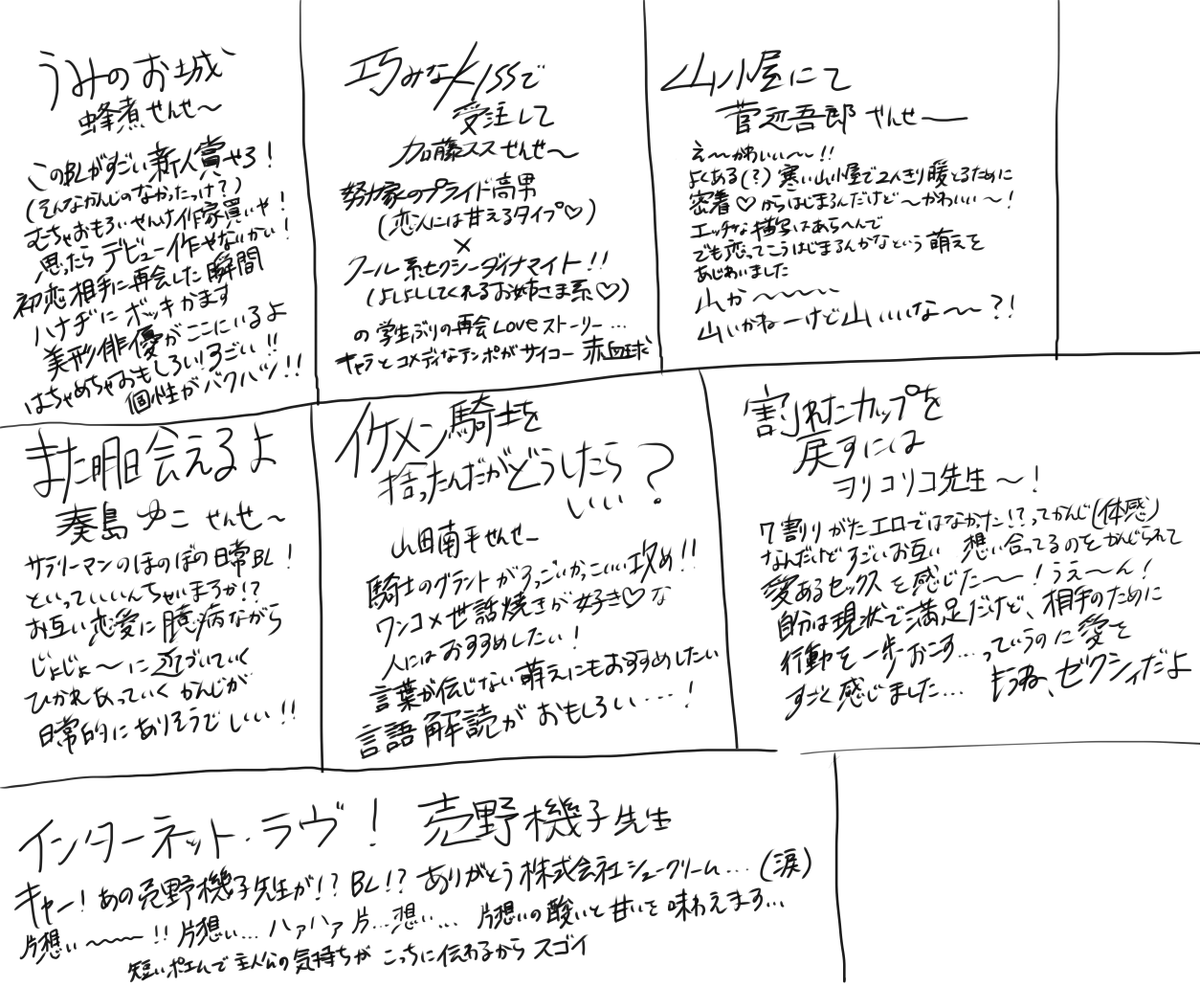 うみのお城
蜂煮せんせ〜
このBLがすごい新人賞やろ!
(そんなかんじのなかったっけ?)
むちゃおもろいやんけ作家買いや!
思ったらデビュー作やないかい!
初恋相手に再会した瞬間
ハナヂにボッキかます
美形俳優がここにいるよ
はちゃめちゃおもしろい!すごい!!
個性がバクハツ!!
巧みなKISSで
受注して
加藤スス せんせ〜
努力家のプライド高男
(恋人には甘えるタイプ♡)
×
クール系セクシーダイナマイト!!
(よしよししてくれるお姉さま系♡)
の学生ぶりの再会Loveストーリー…
キャラとコメディなテンポがサイコー 赤血球
山小屋にて
菅辺吾郎 やんせ〜
え〜かわいい〜!!
よくある(?)寒い山小屋で2人きり暖とるために
密着♡からはじまるんだけど〜かわいい〜!
エッチな描写はあらへんで
でも恋ってこうはじまるんかなという萌えを
あじわいました
山か〜〜〜…
山いかねーけど山いいな〜〜?!
また明日会えるよ
奏島ゆこ せんせ〜
サラリーマンのほのぼの日常BL!
といっていいんちゃいまろか!?
お互い恋愛に臆病ながら
じょじょ〜に近づいていく
ひかれあっていくかんじが
日常的にありそうでしいい!!
イケメン騎士を
捨ったんだがどうしたら
いい?
山田南平せんせー
騎士のグラントがすっごいかっこいい攻め!!
ワンコ×世話焼きが好き♡な
人にはおすすめしたい!
言葉が伝じない萌えにもおすすめしたい
言語解読がおもしろい…!
割れたカップを
戻すには
ヨリコリコ先生〜!
7割りがたエロではなかった!?ってかんじ(体感)
なんだけどすごいお互い 想い合ってるのをかんじられて
愛あるセックスを感じた〜〜!うえ〜ん!
自分は現状で満足だけど、相手のために
行動を一歩おこす…っていうのに愛を
すごく感じました… もうね、ゼクシィだよ
インターネット・ラヴ! 売野機子先生
キャー!あの売野機子先生が!?BL!?ありがとう株式会社シュークリーム…(涙)
片想い〜〜〜!!片想い…ハァハァ片…想い… 片想いの酸いと甘いを味わえます…
短いポエムで主人公の気持ちがこっちに伝わるからスゴイ